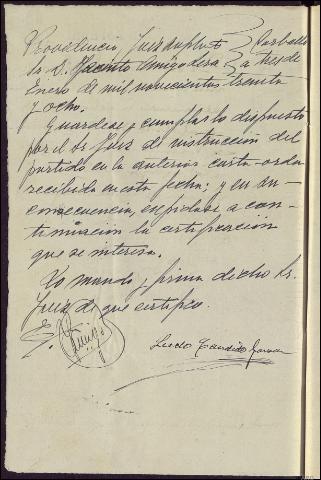 Providencia, Juez suplente } Carballo
Sr. D. Jacinto Amigo } a tres de
Enero de mil novecientos treinta
y ocho.
Guardese y cumplase lo dispuesto
por el Sr Juez de instrucción del
partido en la anterior carta-orden
recibida en esta fecha; y en su con-
consecuencia, expidase a con-
tinuación la certificación
que se interesa.
Lo mando y firma dicho Sr.
Juez de que certifico.
E/ Amigo
Cándido